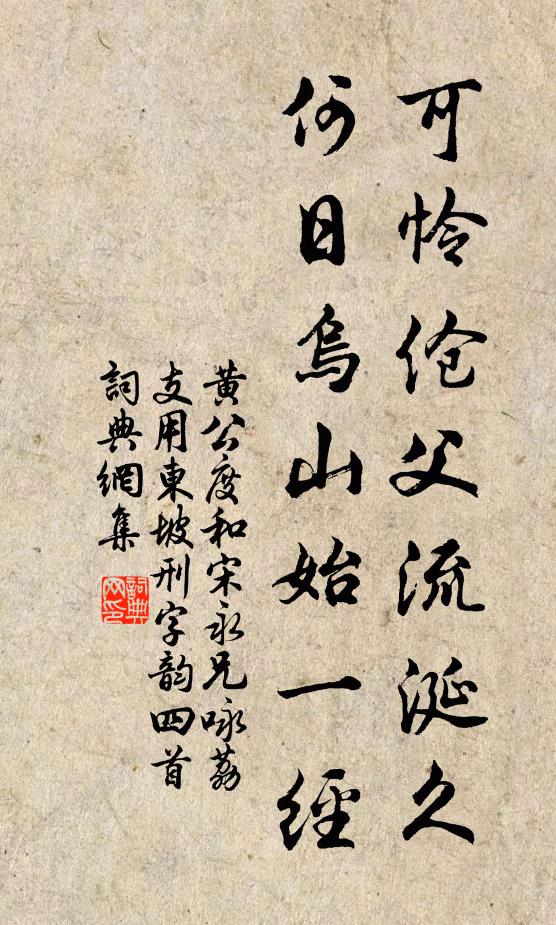 可怜伧父流涎久
何日烏山始一經
黃公度和宋永兄咏荔
支用東坡刑字韵四首
詞典網集
詞典
网印